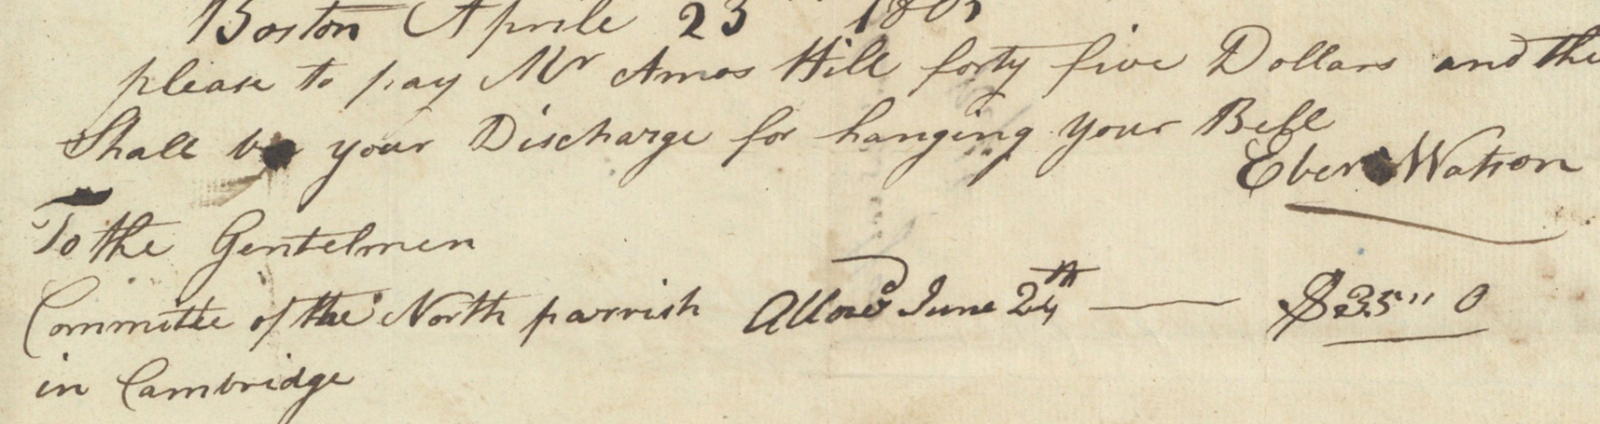 Boston Aprile 23 180
please to pay Mr Amos Hill forty five Dollars and the
Shall be your Discharge for hanging your Bell
Eben Watson
To the Gentelmen
Committe of the North parrish Allowd June 24th — $35" 0
in Cambridge